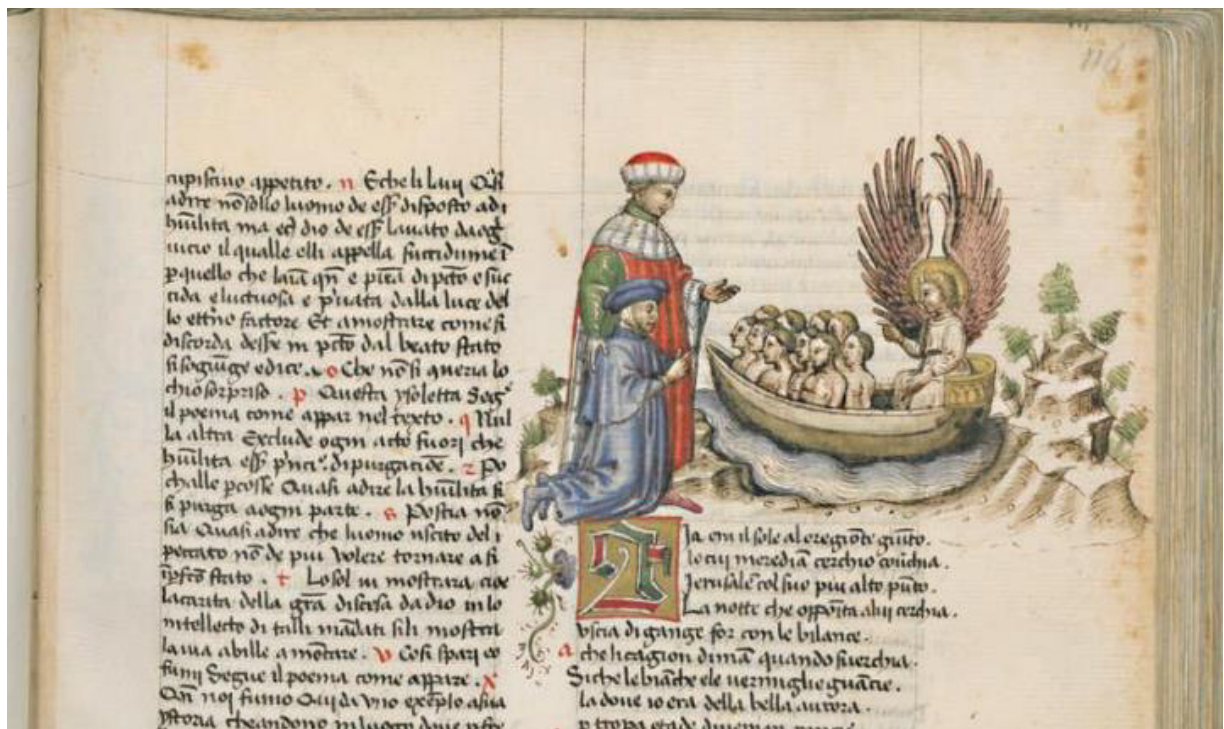 cupiscivo appetito. n Eche li lavi Q̃si
adire nõ sollo luomo de eſſ̃ disposto ad i
hũilita ma ecd̃ dio de eſſ̃ lavato da og̃
vicio il qualle elli appella succidume ĩ
p̱quello che laĩa qñ e pĩa di pct̃o e suc
cida e luctuosa e p̾vata dalla luce del
lo ett̾no factore Et a mostrare come si
discorda desse in pct̃o dal beato stato
si sogiũge e dice. o Che nõ si queria lo
chio sorpriso. p Questa ysoletta Seg̾
il poema come appar nel texto. q Nul
la altra Exclude ogni acto fuori che
hũilita eſſ̃ di purgaciõe. r Po
challe p̱cosse Quasi adire la hũilita si
si purga a ogni parte. s Postia nõ
sia Quasi adire che luomo uscito del
peccato nõ de piu volere tornare a si
stato. t Lo sol vi mostrara cioe
la carita della gr̃a discesa da dio in lo
intellecto di talli mãdati li li mostra
la via abille a mõtare. v Cosi spari eo
Segue il poema come appare. x
Qñ noi fumo Qui da uno exẽplo a sua
ystoria
116
Ia era il sole al oregiõte giũto.
lo cui meredia͂ cerchio coṽchia.
Jerusale͂ col suo piu alto pũto.
La notte che oppoita a lui cerchia.
uscia di gange for con le bilance.
a che li cagion di mã quando suerchia.
Si che le biãche e le vermiglie guãcie.
la dove io era della bella aurora.
p̱ tropa etade